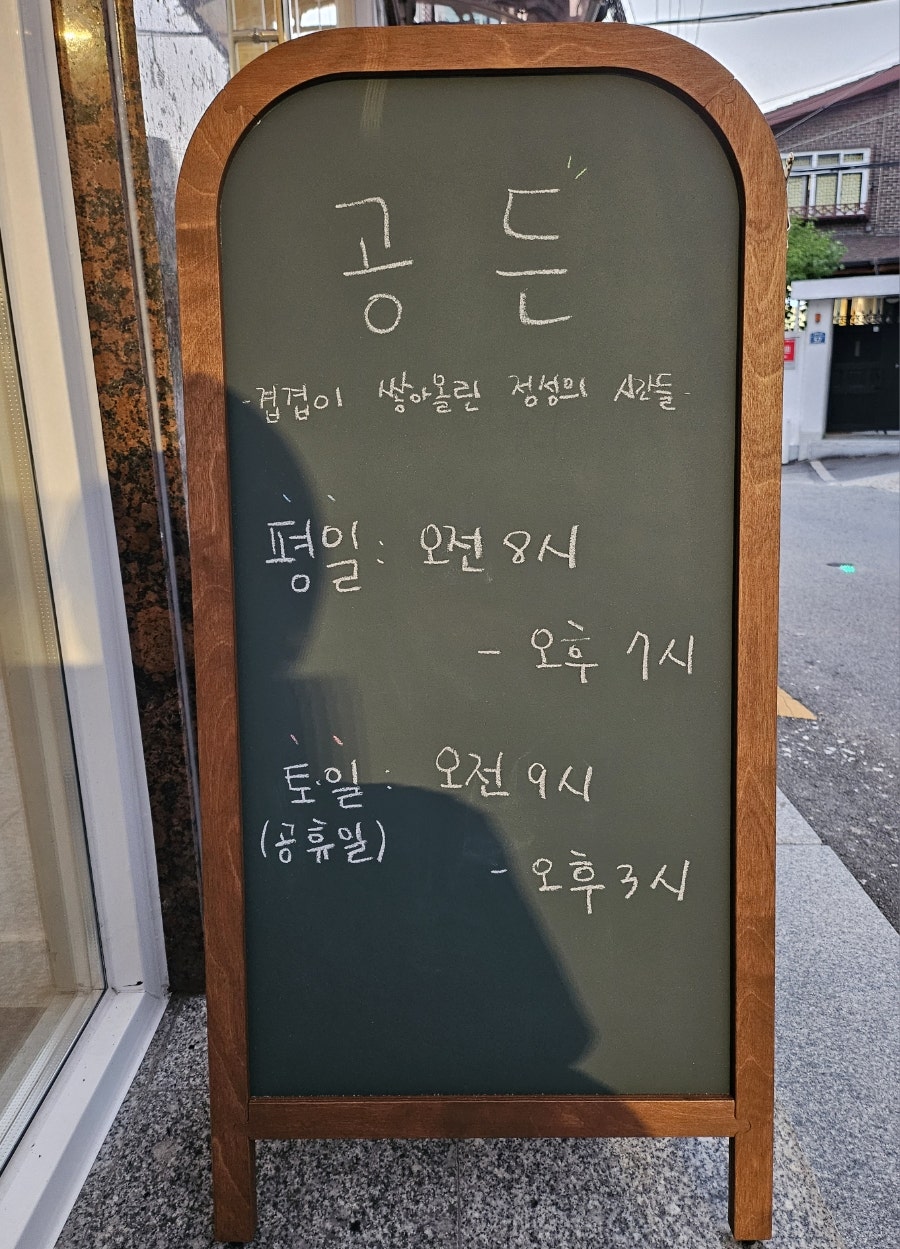 공든
-겹겹이 쌓아올린 정성의 시간들-
평일: 오전 8시
- 오후 7시
토·일: 오전 9시
(공휴일)
- 오후 3시